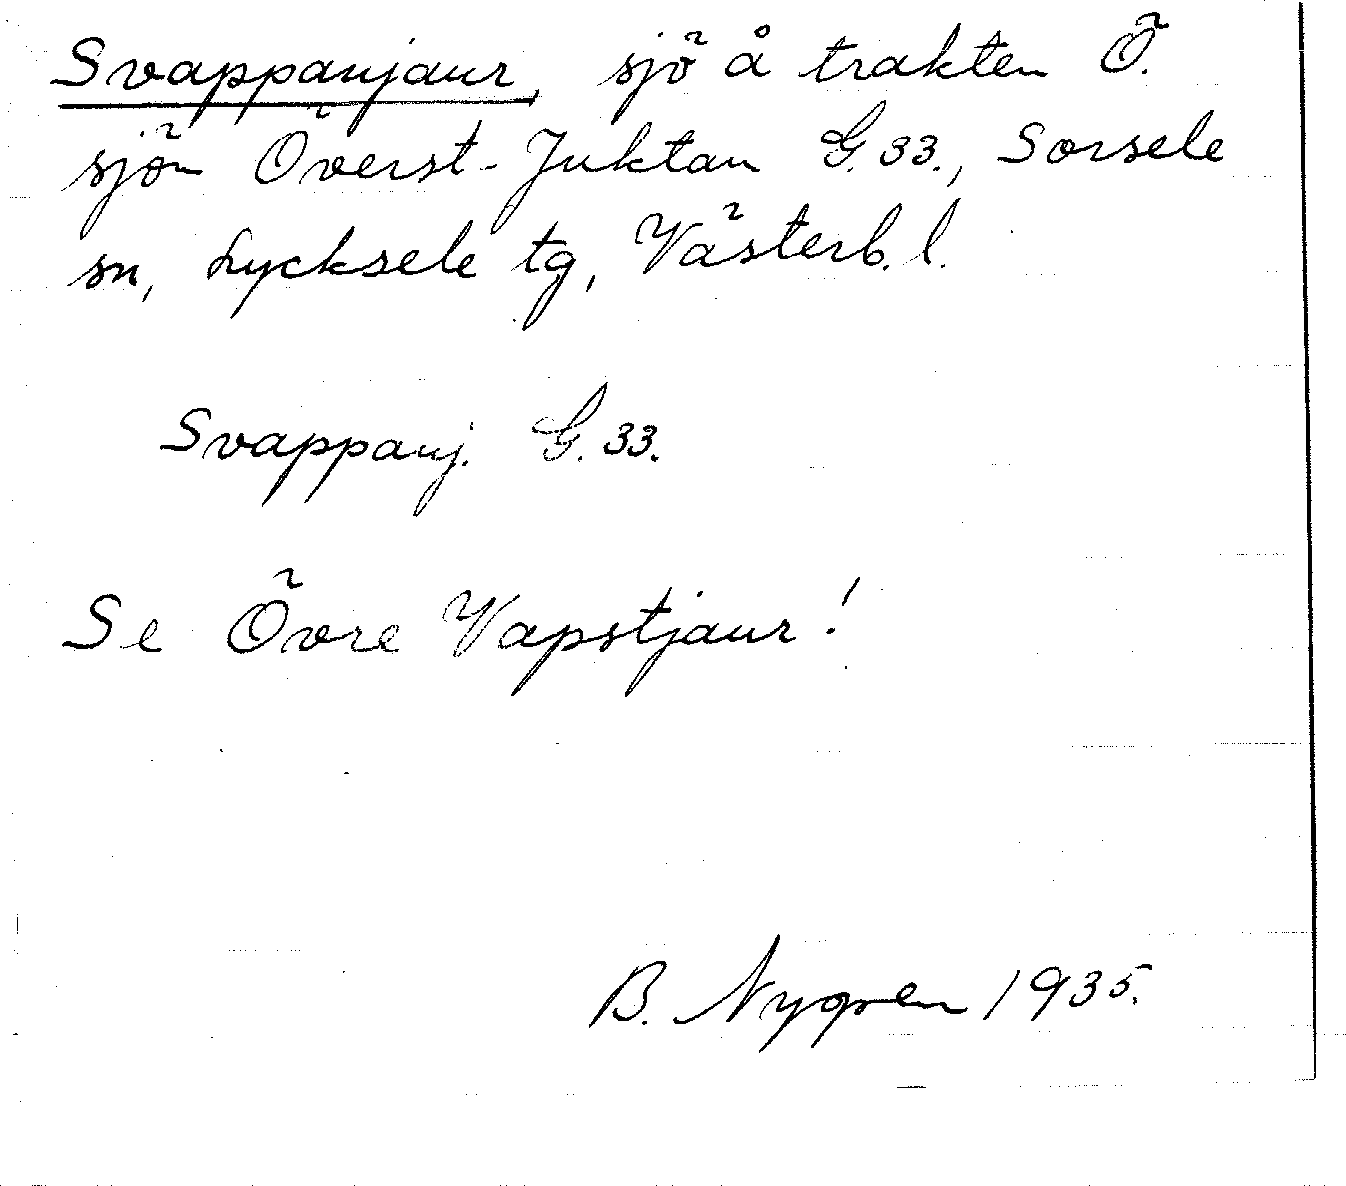 Svappanjaur, sjö å trakten Ö.
sjön Överst-Juktan G.33., Sorsele
sn, Lycksele tg, Västerb. l.
Svappanj. G.33.
Se Övre Vapstjaur!
B. Nygren 1935.